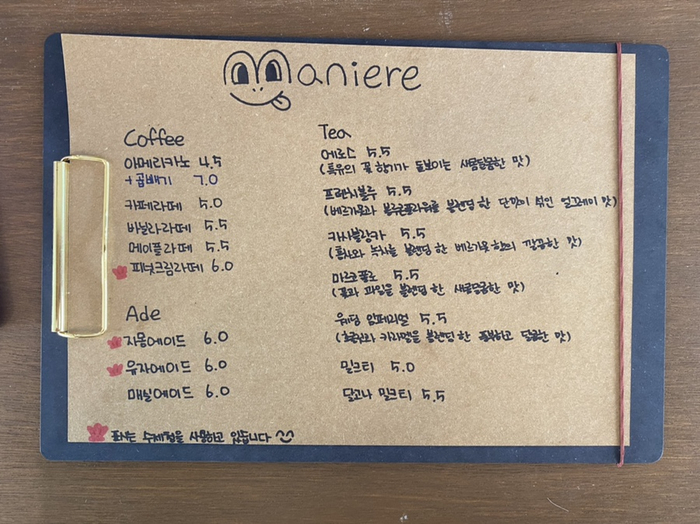 Maniere
Coffee
아메리카노 4.5
+곱빼기 7.0
카페라떼 5.0
바닐라라떼 5.5
메이플라떼 5.5
피넛크림라떼 6.0
Ade
자몽에이드 6.0
유자에이드 6.0
매실에이드 6.0
표시는 수제청을 사용하고 있습니다
Tea
에로스 5.5
(특유의 꽃 향기가 돋보이는 새콤달콤한 맛)
프렌치블루 5.5
(베르가못과 블루콘플라워를 블렌딩 한 단맛이 섞인 얼그레이 맛)
카사블랑카 5.5
(홍차와 녹차를 블렌딩 한 베르가못 향의 깔끔한 맛)
마르코폴로 5.5
(꽃과 과일을 블렌딩 한 새콤달콤한 맛)
웨딩 임페리얼 5.5
(초콜릿과 카라멜을 블렌딩 한 풍부하고 달콤한 맛)
밀크티 5.0
달고나 밀크티 5.5